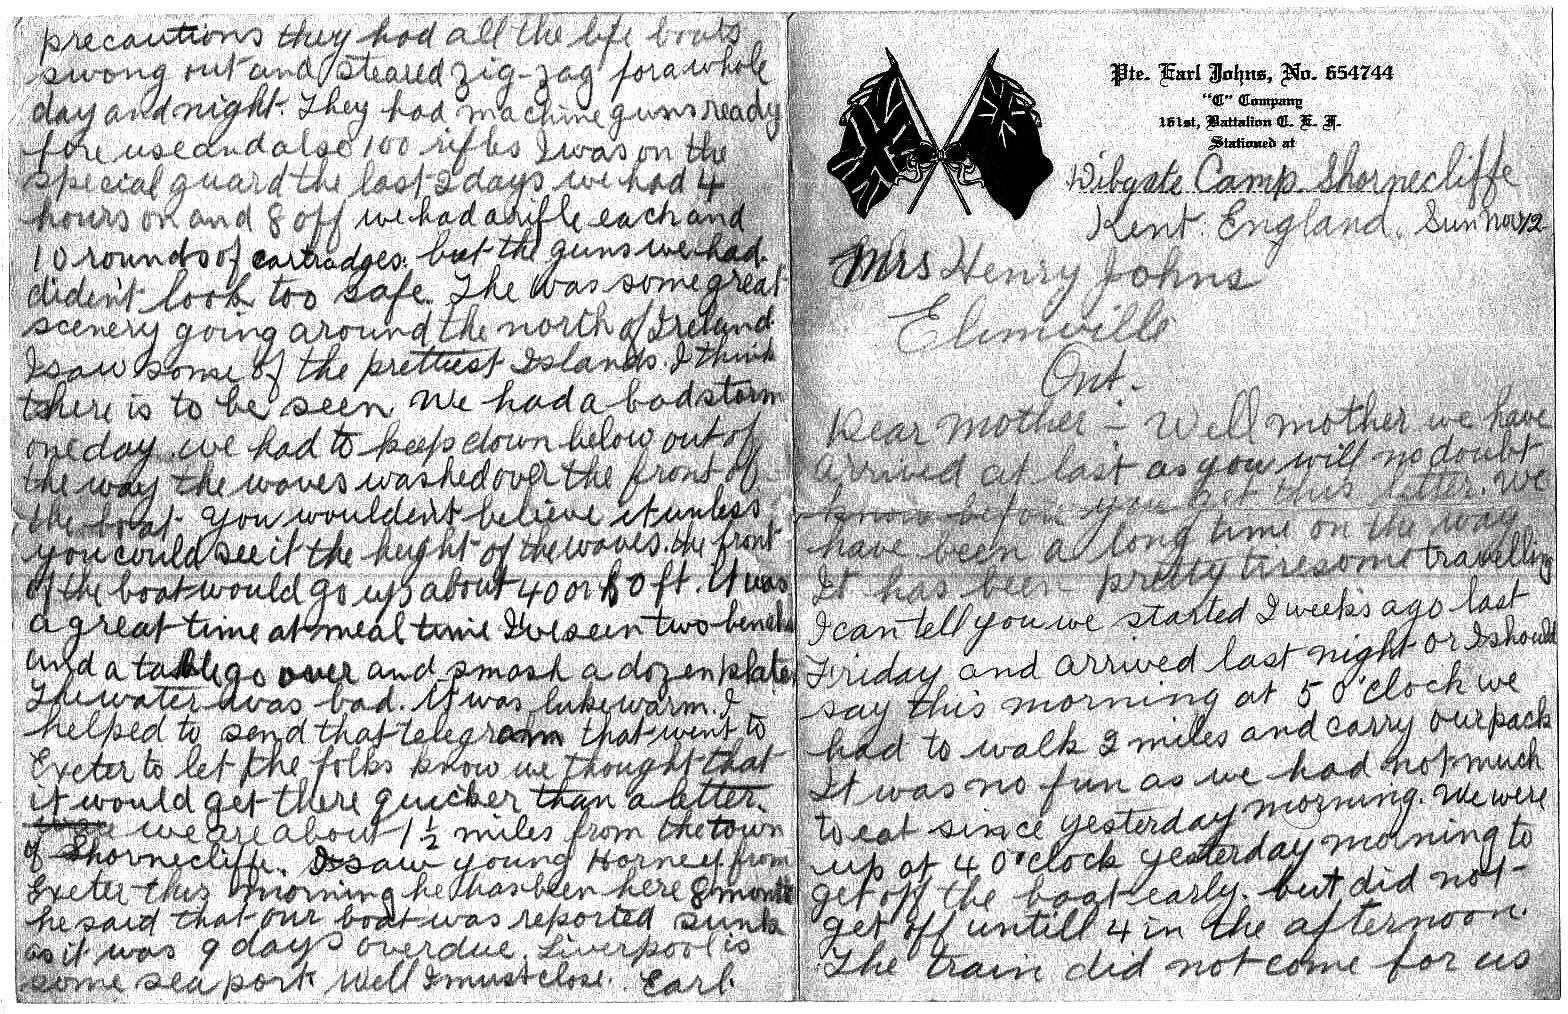 Pte. Earl Johns, No. 654744
"C" Company
161st, Battalion C. E. F.
Stationed at
Dibgate Camp. Shornecliffe
Kent. England. Sun Nov 12
Mrs Henry Johns
Elimville
Ont.
Dear Mother - Well mother we have
arrived at last as you will no doubt
know before you get this letter. We
have been a long time on the way
It has been pretty tiresome travelling
I can tell you we started 2 weeks ago last
Friday and arrived last night or I should
say this morning at 5 o'clock we
had to walk 2 miles and carry our pack
It was no fun as we had not much
to eat since yesterday morning. We were
up at 4 o'clock yesterday morning to
get off the boat early. but did not
get off untill 4 in the afternoon.
The train did not come for us
precautions they had all the life boats
swong out and steared zig-zag for a whole
day and night. They had machine guns ready
fore use and also 100 rifles I was on the
special guard the last 2 days we had 4
hours on and 8 off we had a rifle each and
10 rounds of cartradges. but the guns we had
dident look too safe. The was some great
scenery going around the north of Ireland.
I saw some of the prettiest Islands. I think
there is to be seen We had a bad storm
one day we had to keep down below out of
the way the waves washed over the front of
the boat. You wouldent believe it unless
you could see it the height of the waves. the front
of the boat would go up about 40 or 50 ft. It was
a great time at meal time I've seen two benches
and a table go over and smash a dozen plates
The water was bad. It was luke warm. I
helped to send that telegram that went to
Exeter to let the folks know we thought that
it would get there quicker than a letter.
we are about 1½ miles from the town
of Shornecliffe. I saw young Horney from
Exeter this morning he has been here 8 months
he said that our boat was reported sunk
as it was 9 days overdue. Liverpool is
some sea port. Well I must close. Earl.